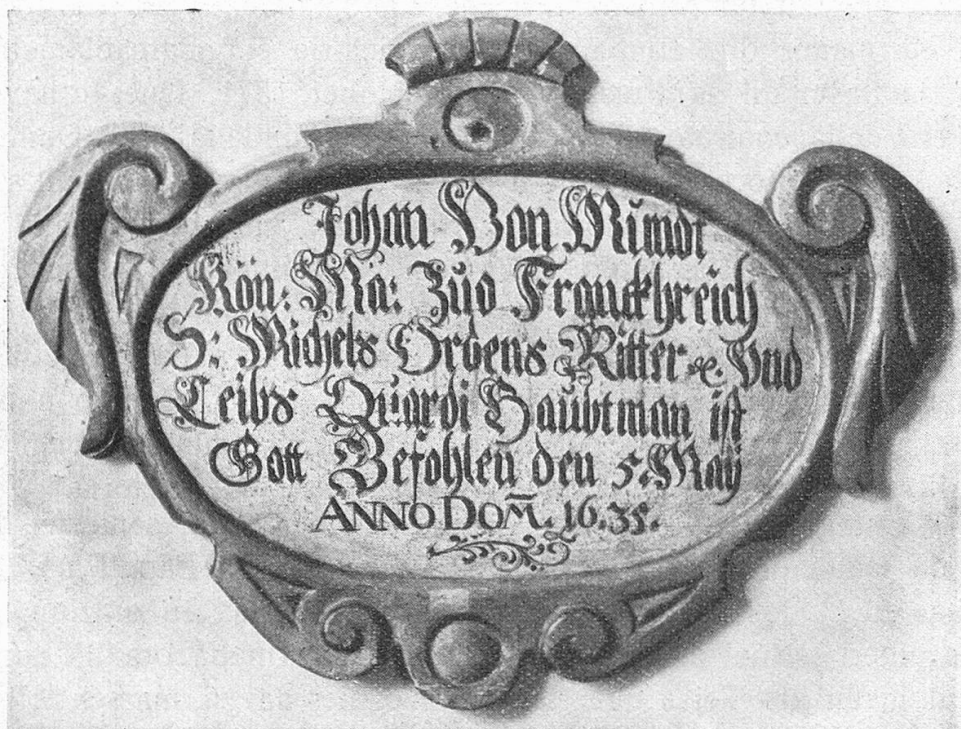 Johan Von Mundt
Kön: Mä: Zuo Franckhreich
S: Michels Ordens Ritter ꝛc. Vnd
Leibs Quardi Haubtman ist
Gott Befohlen den 5. Maÿ
ANNO DOM̅. 16.35.